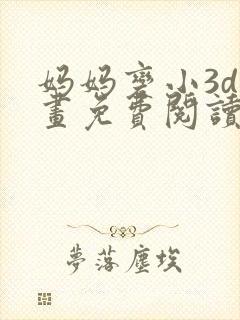 妈妈變小3d
畫免費閱讀
夢落塵埃